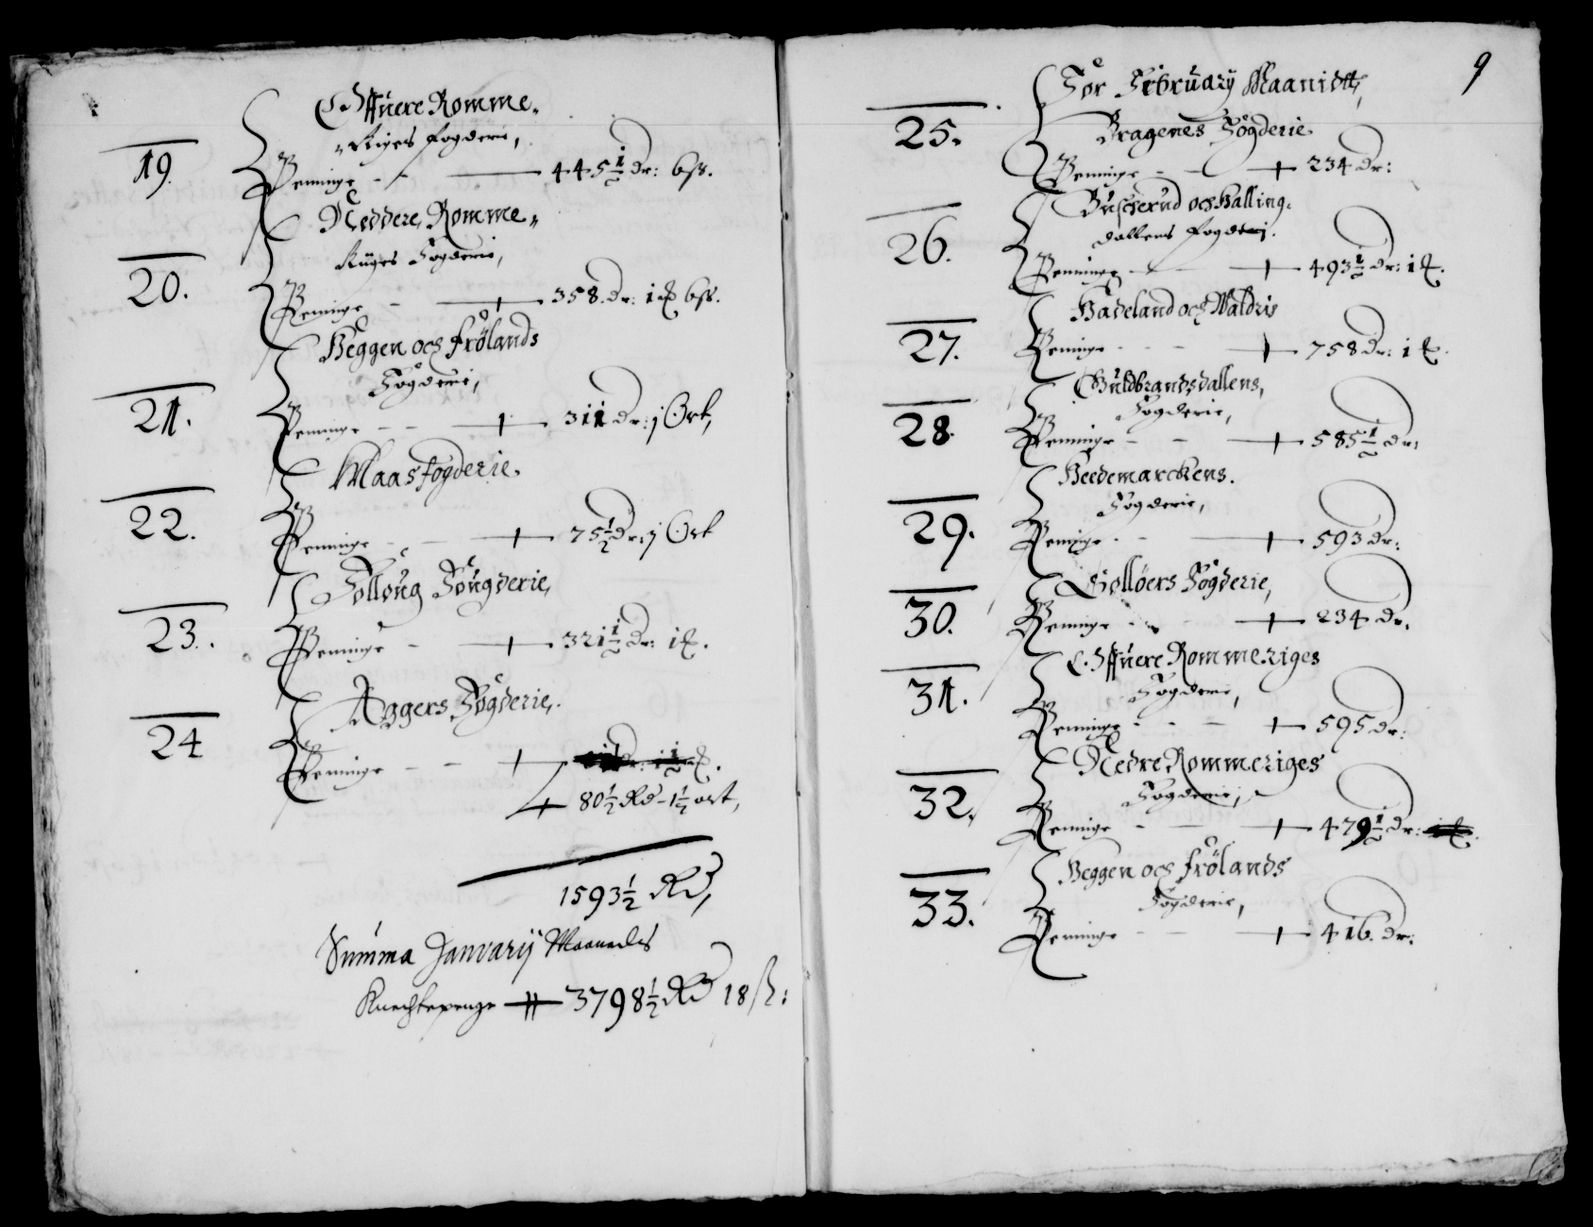 Offuere Romme-
Riges Fogderie,
19.
Penninge - - — 445 1/2 dr: 6 ß.
Neddere Romme-
Riiges Fogderie,
20.
Penninge - + 358. dr: 1 ℔ 6 ß.
Heggen och Frölands
Fogderie,
21.
Penninge - - + 311 dr: j Ort,
Maas fogderie.
22.
Penninge - - + 75 1/2 dr: j Ort
Folloug Fougderie,
23.
Penninge - + 321 1/2 dr: 1 ℔.
Aggers Fogderie,
24
Penninge - - +
+ 80 1/2 Rd - 1 1/2 ort,
1593 1/2 Rd,
Summa Januarij Maanedts
Knechtepenge 3798 1/2 Rd 18 ß:
9
For Februarij Maanidtt,
Bragenes Fogderie
25.
Penninge - - + 234 dr:
Buscherud och Halling-
dallens fogderj.
26.
Penninge - - + 493 1/2 dr: 1 ℔.
Hadeland och Waldris
27.
Penninge - - - + 758 dr: 1 ℔.
Guldbrandsdallens,
Fogderie,
28.
Penninge - - + 585 1/2 dr:
Heedemarckens.
Fogderie,
29.
Penninge - - + 593 dr:
Solløers Fogderie,
30.
Penninge - - + 234 dr.
Offuere Rommeriges
Fogderie,
31.
Penninge - - - + 595 dr:
Nedre Rommeriges
Fogderie,
32.
Penninge - - + 479 1/2 dr:
Heggen och Frölands
Fogderie,
33.
Penninge - - + 416. dr: